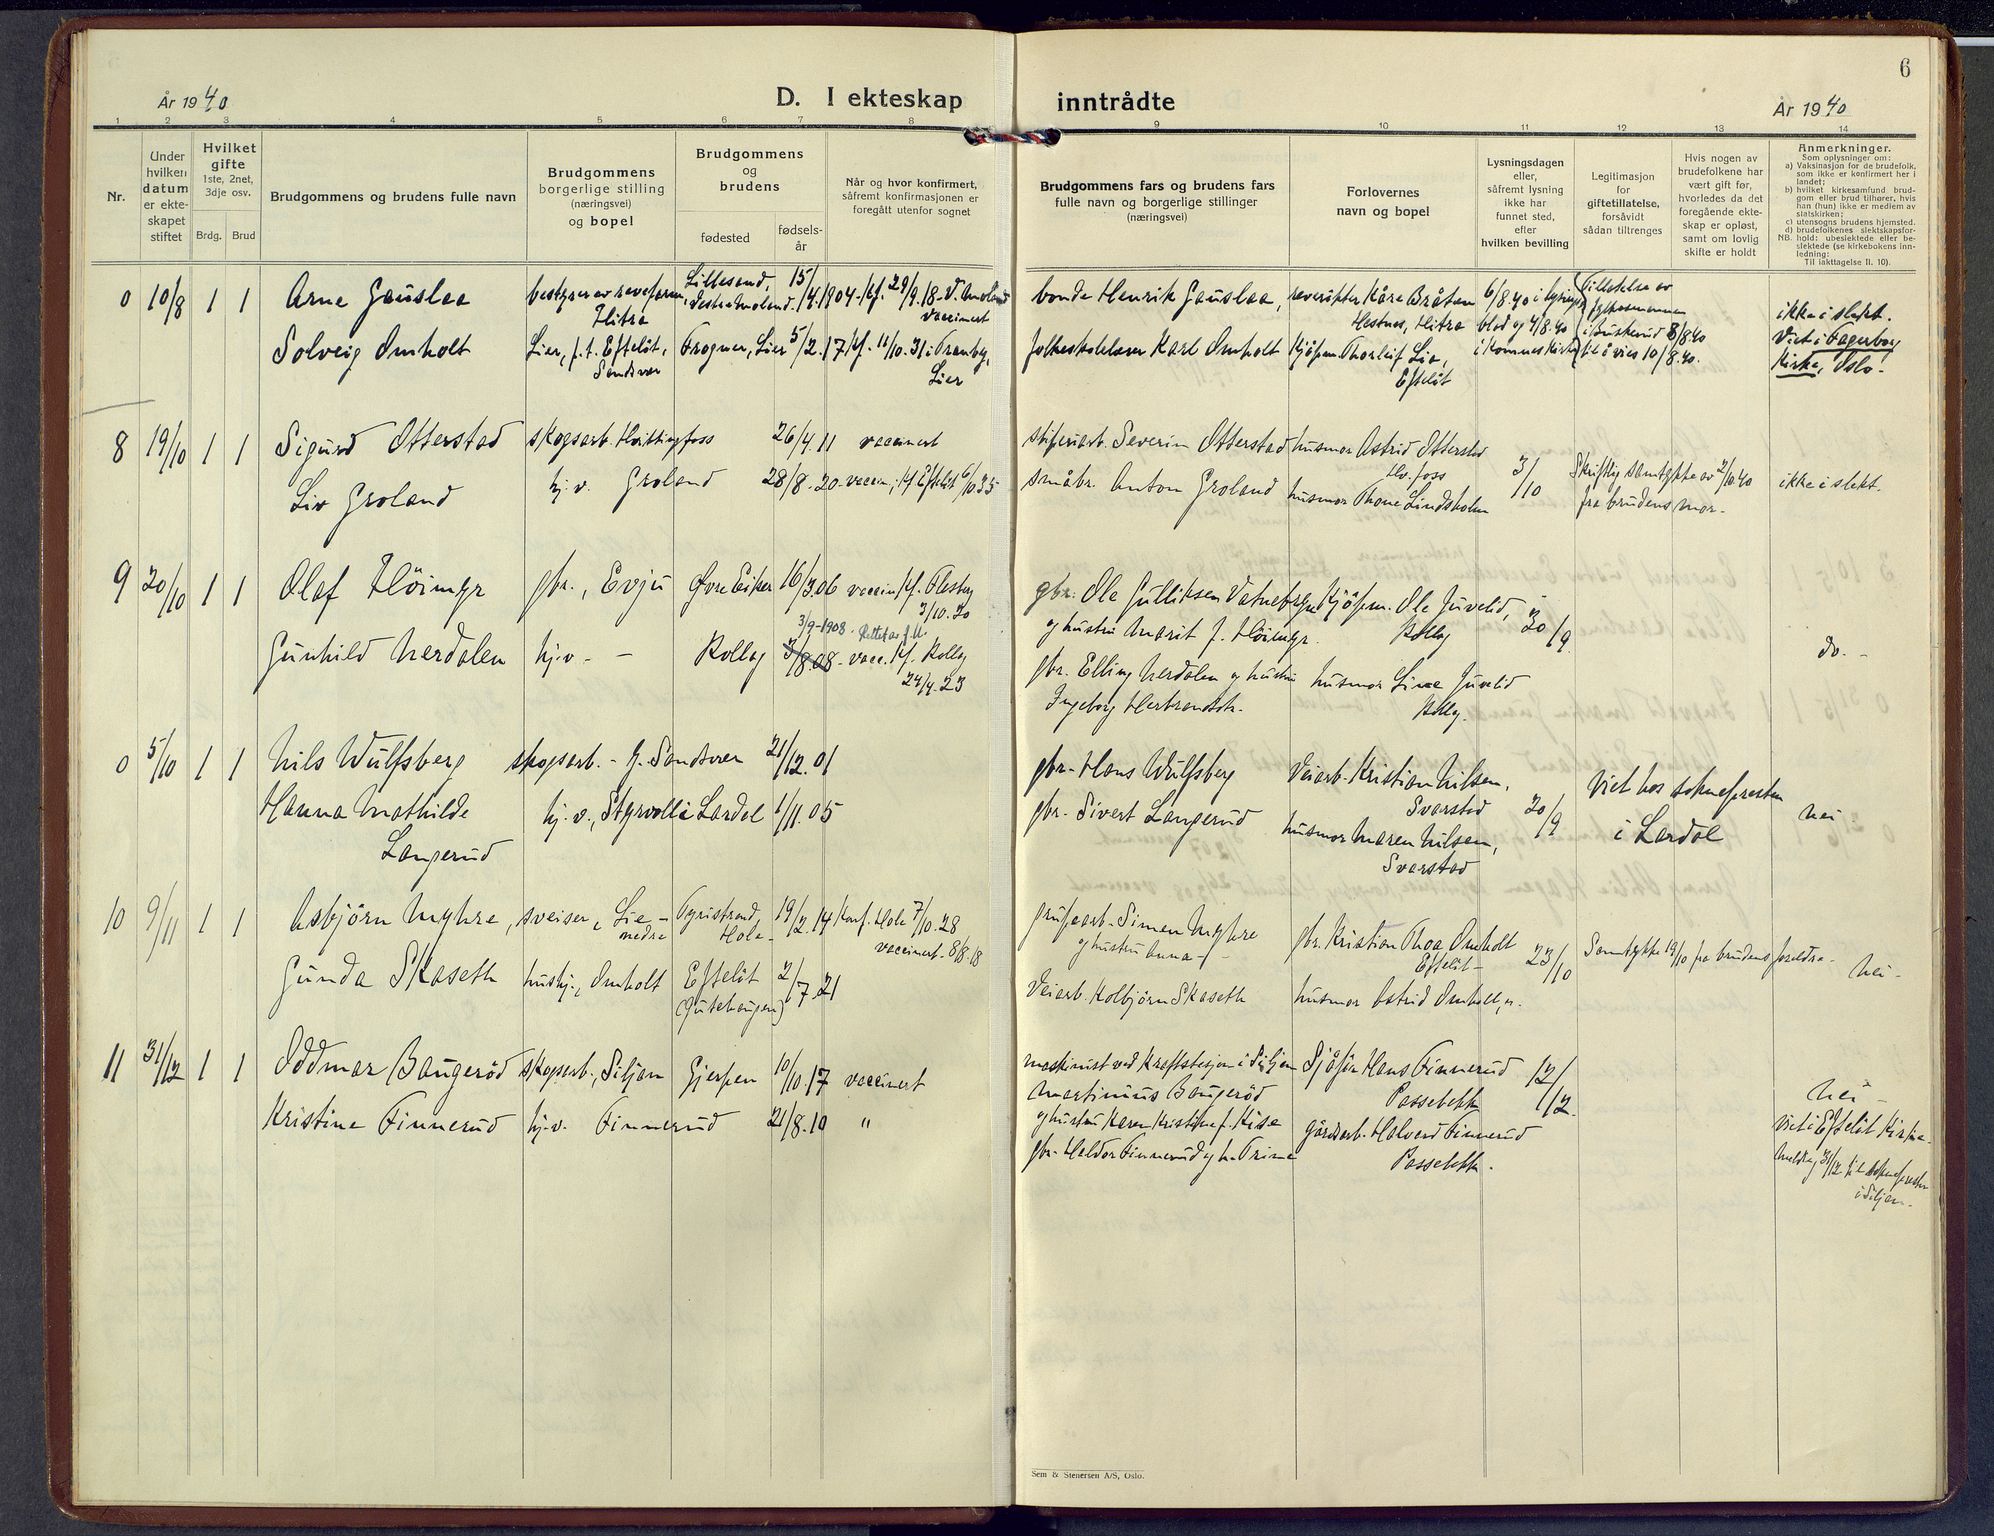 6
År 1940
D. I ekteskap
inntrådte
År 1940
1 2 3 4 5 6 7 8 9 10 11 12 13 14
Nr.
Under
hvilken
datum
er ekte-
skapet
stiftet
Hvilket
gifte
1ste, 2net,
3dje osv.
Brdg. Brud
Brudgommens og brudens fulle navn
Brudgommens
borgerlige stilling
(næringsvei)
og bopel
Brudgommens
og
brudens
fødested
fødsels-
år
Når og hvor konfirmert,
såfremt konfirmasjonen er
foregått utenfor sognet
Brudgommens fars og brudens fars
fulle navn og borgerlige stillinger
(næringsvei)
Forlovernes
navn og bopel
Lysningsdagen
eller,
såfremt lysning
ikke har
funnet sted,
efter
hvilken bevilling
Legitimasjon
for
giftetillatelse,
forsåvidt
sådan tiltrenges
Hvis nogen av
brudefolkene har
vært gift før,
hvorledes da det
foregående ekte-
skap er opløst,
samt om lovlig
skifte er holdt
Anmerkninger.
Som oplysninger om:
a) Vaksinasjon for de brudefolk,
som ikke er konfirmert her i
landet;
b) hvilket kirkesamfund brud-
gom eller brud tilhører, hvis
han (hun) ikke er medlem av
statskirken;
c) utensogns brudens hjemsted.
d) brudefolkenes slektskapsfor-
NB. hold: ubeslektede eller be-
slektede (se kirkebokens inn-
ledning:
Til iakttagelse II. 10).
0 10/8 1 1 Arne Gauslaa
bestyrer av revefarm,
Hitra
Lillesand,
Vestre Moland.
15/4.1904
kf. 29/9.18 V. Moland
vaccinert
bonde Henrik Gauslaa,
reverøkter Kåre Bråten
Hestnes, Hitra
6/8.40 i lysnings
blad og 4/8.40
i Komnes Kirke
Tillatelse av
fylkesmannen
i Buskerud 8/8.40
til å vies 10/8.40.
ikke i slekt.
Viet i Fagerborg
Kirke, Oslo.
Solveig Omholt
Lier, p.t. Efteløt,
Sandsvær
Frogner, Lier
5/2.17
kf. 11/10.31 i Tranby,
Lier
folkeskolelærer Karl Omholt
kjøpm. Thorleif Lia,
Efteløt
8 19/10 1 1 Sigurd Otterstad
skogsarb. Hvittingfoss
26/4.11 vaccinert
sliperiarb. Severin Otterstad
husmor Astrid Otterstad
Hv.foss
3/10
Skriftlig samtykke av 2/10.40
fra brudens mor.
ikke i slekt.
Liv Groland
hj.v. Groland
28/8.20 vaccin., kf Efteløt 6/10.35
småbr. Anton Groland
husmor Thone Lindsholm
9 20/10 1 1 Olaf Höimyr
gbr., Evju
Øvre Eiker
16/3.06
vaccin kf. Flesberg
3/10.20
gbr. Ole Gulliksen Vatnebryn
og hustru Marit f. Höimyr.
Kjøpm. Ole Juvelid,
Rollag
30/9
do.
Gunhild Nerdalen
hj.v.
Rollag
3/9-1908. Rettet av
3/8.08 vacc. kf. Rollag
24/9.23
gbr. Elling Nerdalen og hustru
Ingeborg Herbrandsdt.
husmor Line Juvelid
Rollag.
0 5/10 1 1 Nils Wulfsberg
skogsarb. - Y. Sandsvær
21/12.01
gbr. Hans Wulfsberg
Veiarb. Kristian Nilsen,
Svarstad
20/9
Viet hos sokneprest
i Lardal
nei
Hanna Mathilde
Langerud
hj.v., Styrvoll i Lardal
1/11.05
gbr. Sivert Langerud
husmor Maren Nilsen,
Svarstad
10 9/11 1 1 Asbjörn Myhre,
sveiser, Lie
nedre
Tyristrand,
Hole
19/2.14
Konf. Hole 7/10.28
vaccinert 8/8.18
grubearb. Simen Myhre
og hustru Anna
gbr. Kristian Thoa Omholt
Efteløt
23/10
Samtykke 19/10 fra brudens foreldre.
nei
Gunda Skaseth
hushj., Omholt
Efteløt
(Gutehaugen)
2/7.21
Veiarb. Kolbjörn Skaseth
husmor Astrid Omholt,
11 31/12 1 1 Oddmar Baugeröd
skogsarb., Siljan
Gjerpen
10/10.17
vaccinert
maskinist ved kraftstasjon i Siljan
Martinius Baugeröd
og hustru Karen Kristine f. Kise
Sjåför Hans Finnerud
Passebekk
12/12.
nei
viet i Efteløt Kirke
melding 31/12 til sokneprest
i Siljan.
Kristine Finnerud
hj.v. Finnerud
21/8.10 "
gbr. Haldor Finnerud og h. Trine
gårdsarb. Halvord Finnerud
Passebekk.
Sem & Stenersen A/S, Oslo.